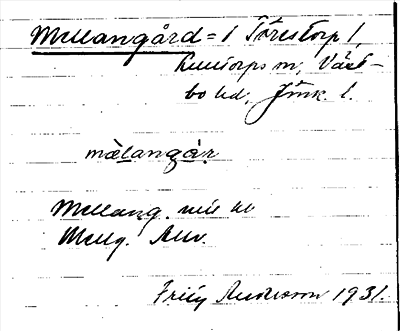 Mellangård = i Torestorp l,
Kulltorps sn, Väst-
bo hd, Jönk. l.
mälangar
Mellang.
Mellg.
Fritz Anderson 1931.